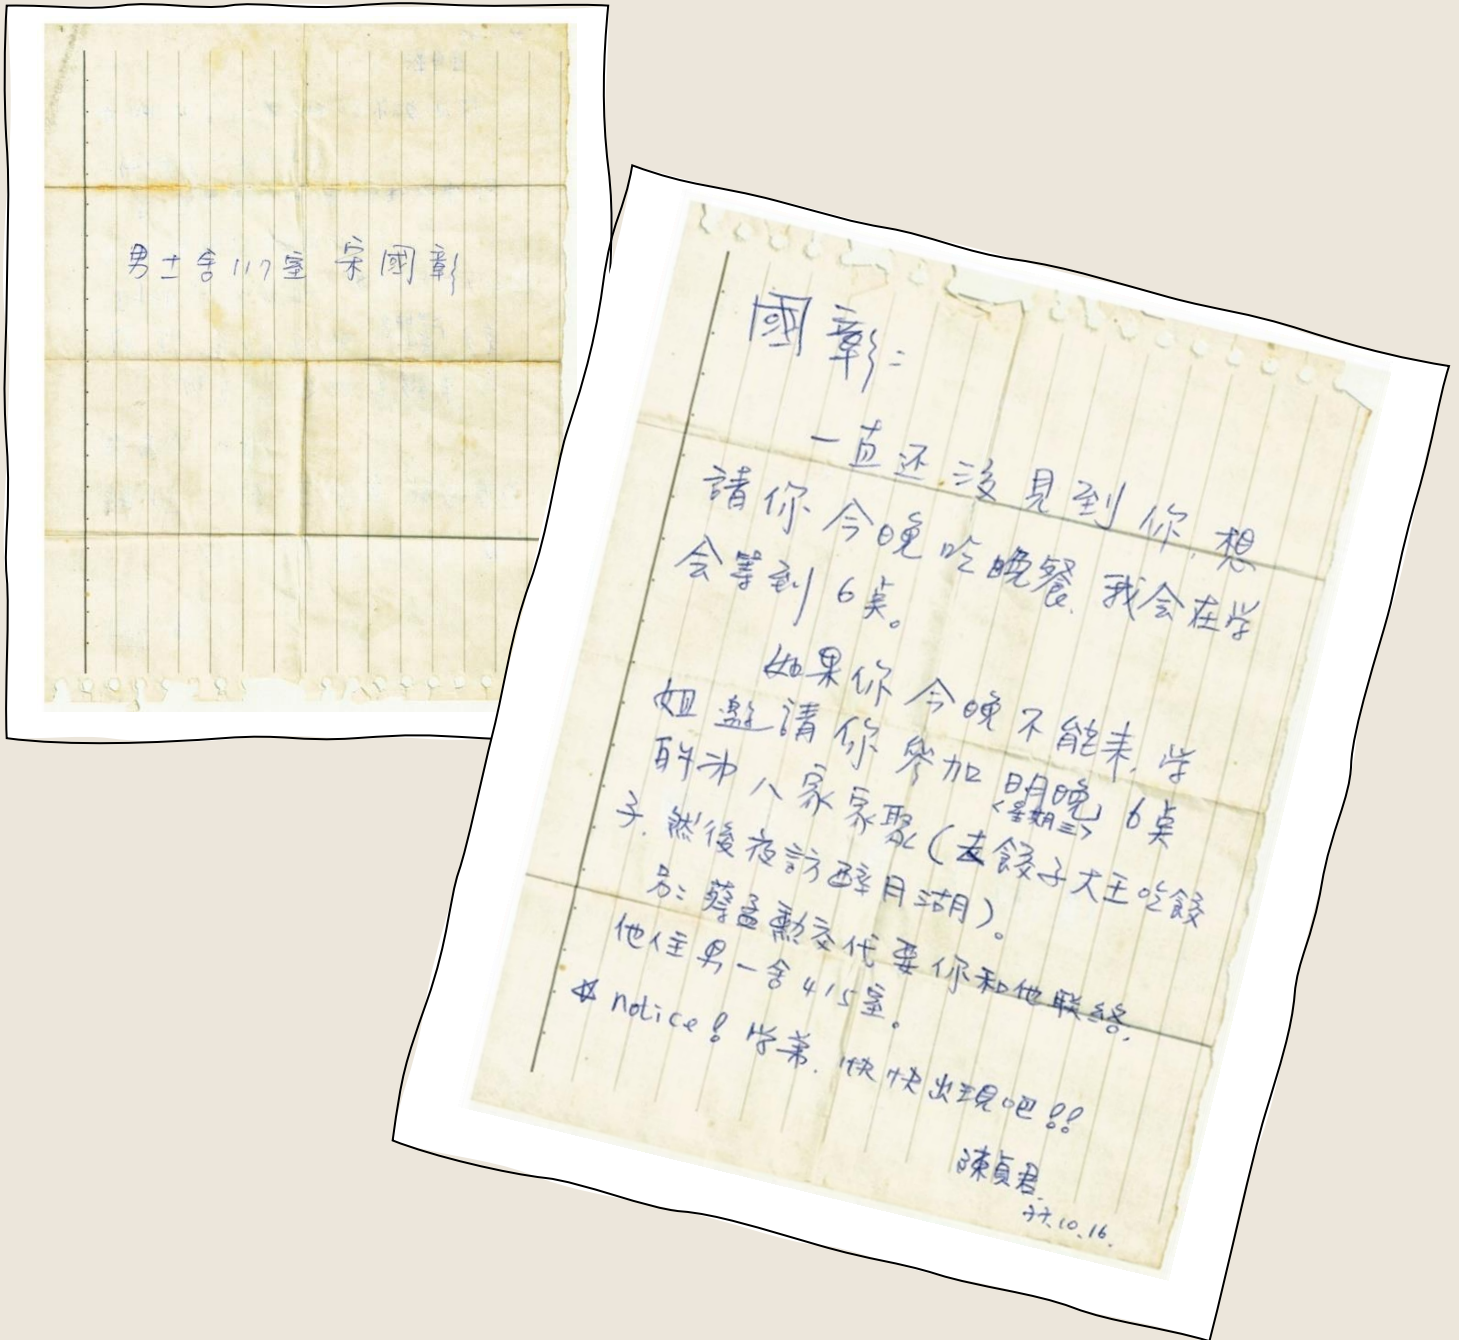 男士舍117室 宋國彰
國彰：
一直还沒見到你，想
請你今晚吃晚餐，我会在学
会等到6奌。
如果你今晚不能来，学
姐邀請你參加明晚6奌
<星期三>
八家家聚(去餃子大王吃餃
子，然後夜訪醉月湖)。
另：蔡孟勳交代要你和他联絡，
他住男一舍415室。
☆notice！学弟，快快出現吧！！
陳貞君
77.10.16.